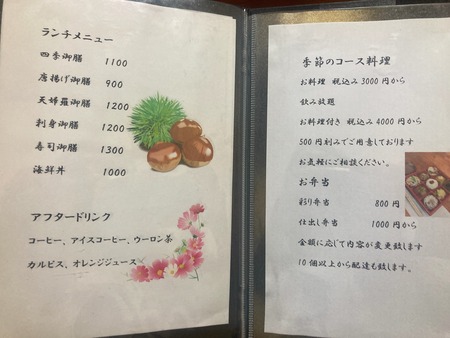 ランチメニュー
四季御膳 1100
唐揚げ御膳 900
天婦羅御膳 1200
刺身御膳 1200
寿司御膳 1300
海鮮丼 1000
アフタードリンク
コーヒー、アイスコーヒー、ウーロン茶
カルピス、オレンジジュース
季節のコース料理
お料理 税込み3000円から
飲み放題
お料理付き 税込み4000円から
500円刻みでご用意しております
お気軽にご相談ください。
お弁当
彩り弁当 800円
仕出し弁当 1000円から
金額に応じて内容が変更致します
10個以上から配達も致します。